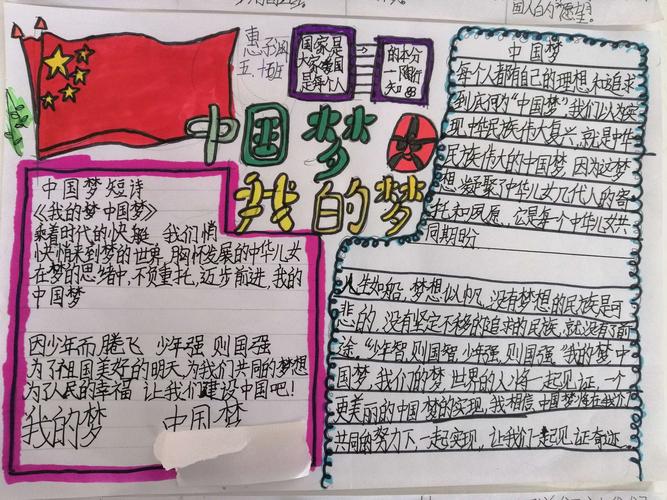 惠
五、班
国家是
大家爱国
是每个人
的本分
一陶行
知
中国梦
我的梦
中国梦短诗
《我的梦中国梦》
乘着时代的快艇，我们悄
快悄来到梦的世界，胸怀发展的中华儿女
在梦的思绪中，不负重托，迈步前进，我的
中国梦
因少年而腾飞 少年强 则国强
为了祖国美好的明天，为我们共同的梦想
为了人民的幸福 让我们建设中国吧！
我的梦 中国梦
中国梦
每个人都有自己的理想和追求
到底何为“中国梦”我们认为实
现中华民族伟大复兴，就是中华
民族伟大的中国梦，因为这梦
想，凝聚了中华儿女几代人的寄
托和夙愿，它是每一个中华儿女共
同期盼
人生如船，梦想似帆，没有梦想的民族是可
悲的，没有坚定不移的追求的民族，就没有了前
途，“少年智，则国智，少年强，则国强”我的梦，中
国梦，我们的梦，世界的人将一起见证，一个
更美丽的中国梦的实现，我相信，中国梦将在我们
共同的努力下，一起实现，让我们一起见证奇迹